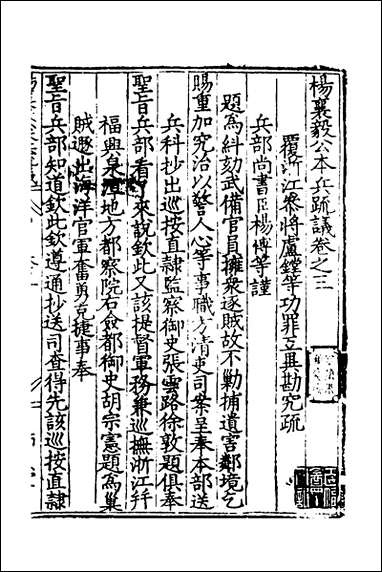 楊襄毅公本兵疏議卷之三
覆浙江叅將盧鏜等功罪互異勘究疏
兵部尚書臣楊博等謹
題為糾劾武備官員擁衆逐賊故不勦捕遺害鄰境乞
賜重加究治以警人心等事職方清吏司案呈奉本部送
兵科抄出巡按直隷監察御史張雲路徐敦題俱奉
聖旨兵部看了來說欽此又該提督軍務兼巡撫浙江幷
福興泉漳地方都察院右僉都御史胡宗憲題為巢
賊遯出海洋官軍奮勇克捷事奉
聖旨兵部知道欽此欽遵通抄送司查得先該巡按直隷